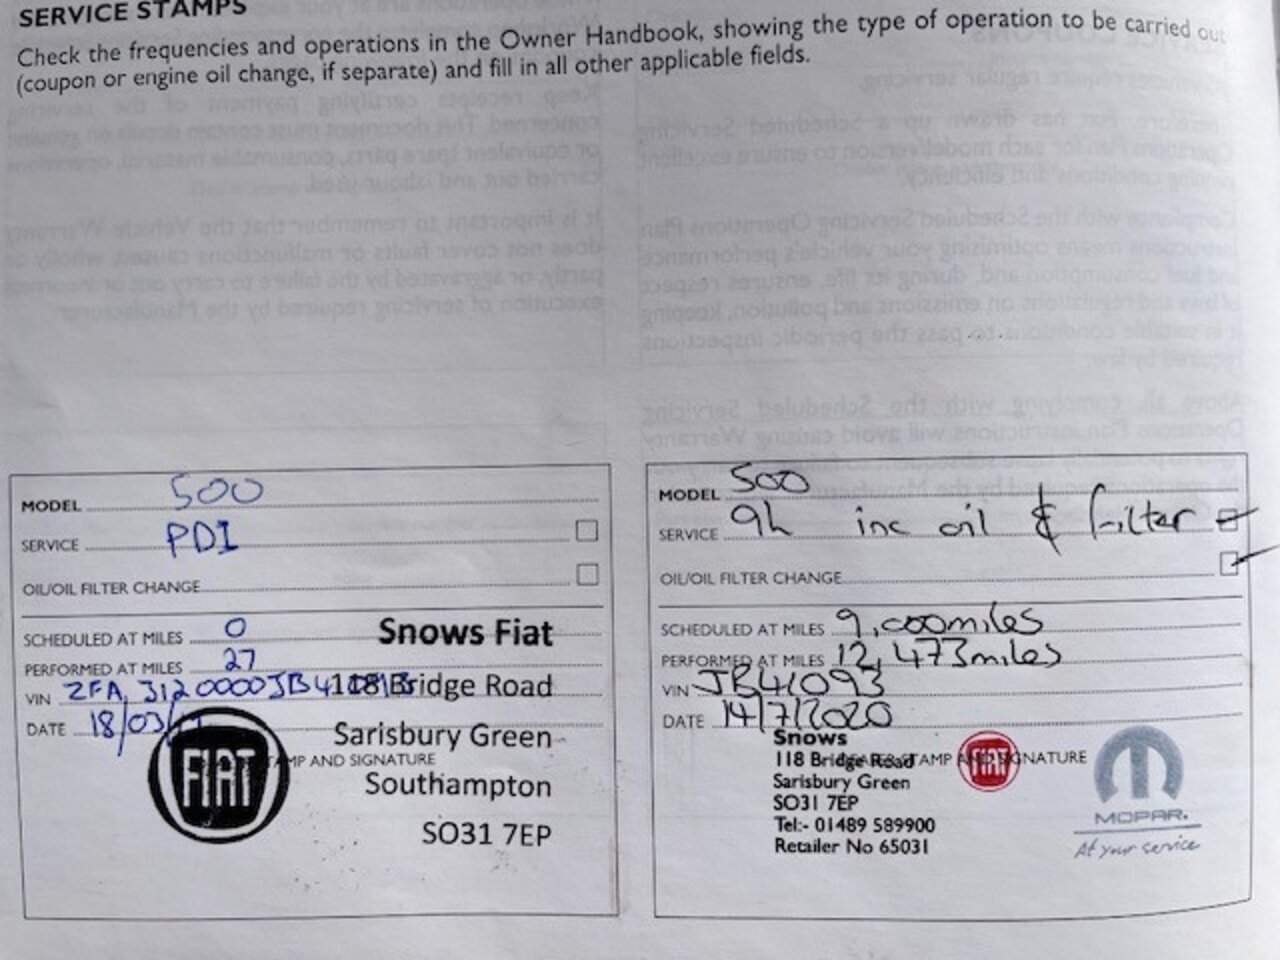 SERVICE STAMPS
Check the frequencies and operations in the Owner Handbook, showing the type of operation to be carried out
(coupon or engine oil change, if separate) and fill in all other applicable fields.
MODEL 500
SERVICE PDI
OIL/OIL FILTER CHANGE
SCHEDULED AT MILES 0
PERFORMED AT MILES 27
VIN ZFA 3120000JB41093
DATE 18/03/
STAMP AND SIGNATURE
FIAT
Snows Fiat
118 Bridge Road
Sarisbury Green
Southampton
SO31 7EP
MODEL 500
SERVICE 9k inc oil & filter
OIL/OIL FILTER CHANGE
SCHEDULED AT MILES 9,000miles
PERFORMED AT MILES 12,473miles
VIN JB41093
DATE 14/7/2020
STAMP AND SIGNATURE
Snows
118 Bridge Road
Sarisbury Green
SO31 7EP
Tel:- 01489 589900
Retailer No 65031
FIAT
MOPAR.
At your service